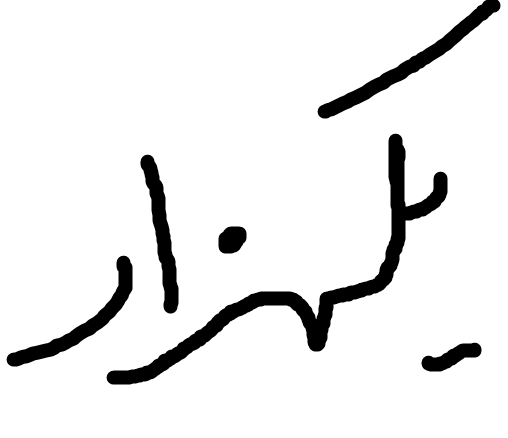 یکهزار